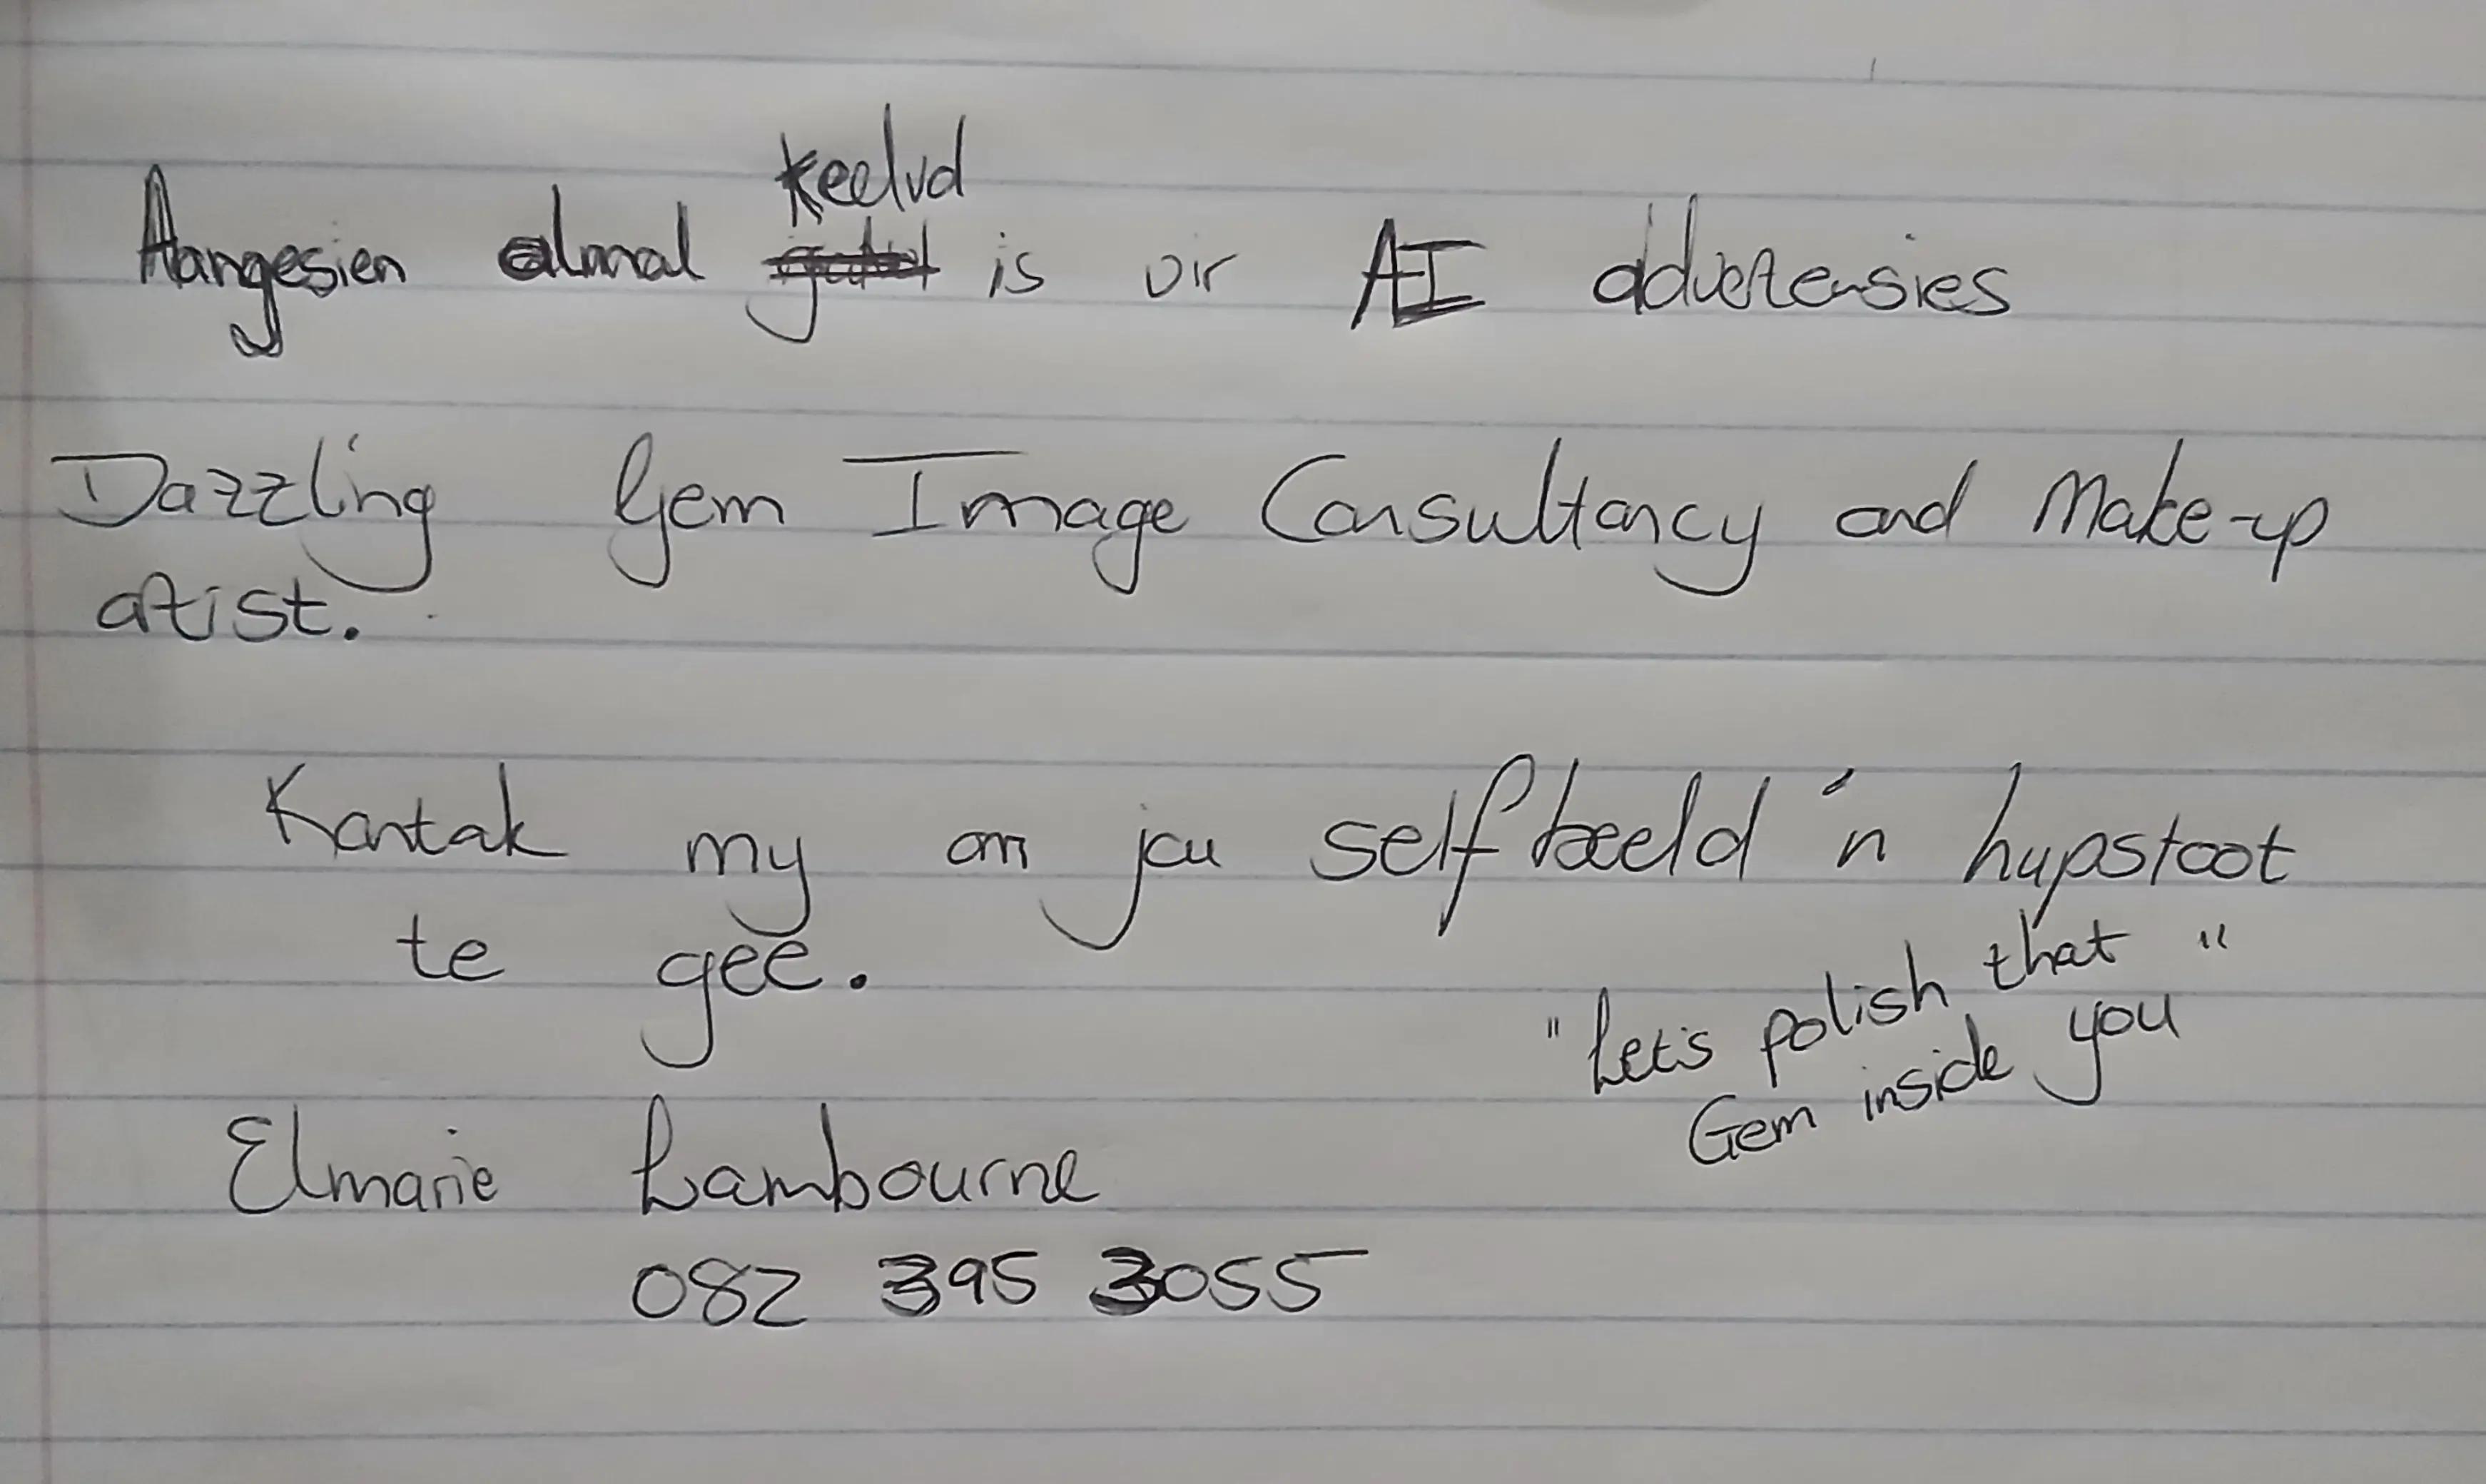 Aangesien almal keelvol is vir AI advertensies
Dazzling Gem Image Consultancy and Make-up
artist.
Kontak my om jou selfbeeld 'n hupstoot
te gee.
"Let's polish that
Gem inside you"
Elmarie Lambourne
082 395 3055